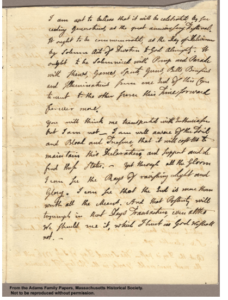 I am apt to believe that it will be celebrated, by succeeding Generations, as the great anniversary Festival.
It ought to be commemorated, as the Day of Deliverance
by solemn Acts of Devotion to God Almighty. It
ought to be solemnized with Pomp and Parade
with Shews, Games, Sports, Guns, Bells, Bonfires
and Illuminations from one End of this Continent to the other from this Time forward
forever more.
You will think me transported with Enthusiasm
but I am not. I am well aware of the Toil
and Blood and Treasure, that it will cost Us to
maintain this Declaration, and support and defend these States. Yet through all the Gloom
I can see the Rays of ravishing Light and
Glory. I can see that the End is more than
worth all the Means. And that Posterity will
tryumph in that Days Transaction, even altho
We should rue it, which I trust in God We shall
not.
From the Adams Family Papers, Massachusetts Historical Society.
Not to be reproduced without permission.